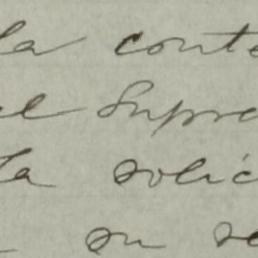 la conte
el Supre
ta solic
su se